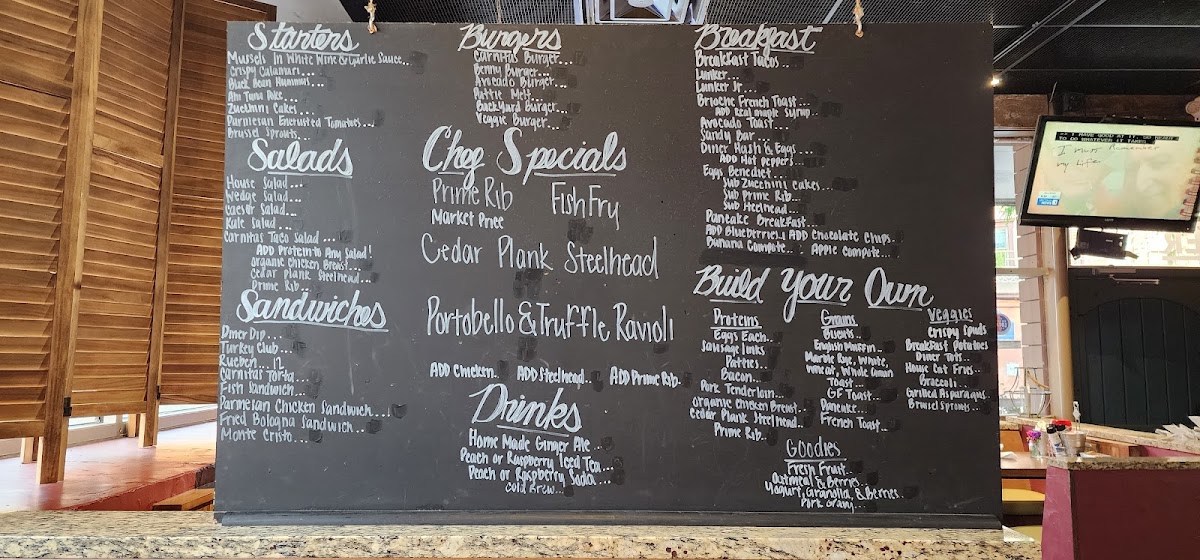 Starters
Mussels In White Wine & Garlic Sauce...
Crispy Calamari...
Black Bean Hummus...
Ahi Tuna Poke...
Zucchini Cakes...
Parmesan Encrusted Tomatoes...
Brussel Sprouts...
Salads
House Salad...
Wedge Salad...
Caesar Salad...
Kale Salad...
Carnitas Taco Salad...
ADD Protein to Any Salad!
Organic Chicken Breast...
Cedar Plank Steelhead...
Prime Rib...
Sandwiches
Diner Dip...
Turkey Club...
Rueben... 12
Carnitas Torta...
Fish Sandwich...
Parmesan Chicken Sandwich...
Fried Bologna Sandwich...
Monte Cristo...
Burgers
Carnitas Burger...
Benny Burger...
Avocado Burger...
Pattie Melt...
Backyard Burger...
Veggie Burger...
Chef Specials
Prime Rib
Market Price
Fish Fry
Cedar Plank Steelhead
Portobello & Truffle Ravioli
ADD Chicken. ADD Steelhead.. ADD Prime Rib.
Drinks
Home Made Ginger Ale...
Peach or Raspberry Iced Tea...
Peach or Raspberry Soda...
Cold Brew...
Breakfast
Breakfast Tacos...
Lunker...
Lunker Jr...
Brioche French Toast...
ADD Real maple syrup..
Avocado Toast...
Sandy Bar...
Diner Hash & Eggs...
ADD Hot Peppers...
Eggs Benedict...
Sub Zucchini Cakes...
Sub Prime Rib...
Sub Steelhead...
Pancake Breakfast...
ADD Blueberries.. ADD Chocolate Chips..
Banana Compote... Apple Compote...
Build Your Own
Proteins
Eggs Each...
Sausage Links
Patties...
Bacon...
Pork Tenderloin...
Organic Chicken Breast
Cedar Plank Steelhead..
Prime Rib..
Grains
Biscuits..
English Muffin..
Marble Rye, White,
Wheat, Whole Grain
Toast...
GF Toast...
Pancake...
French Toast...
Veggies
Crispy Spuds
Breakfast Potatoes
Diner Tots..
House Cut Fries...
Broccoli..
Grilled Asparagus.
Brussel Sprouts...
Goodies
Fresh Fruit...
Oatmeal & Berries...
Yogurt, Granola, & Berries..
Pork Gravy...
I HAVE GOOD AT IT, GO READY
TO DO WHATEVER IT TAKES
I must remember
my life